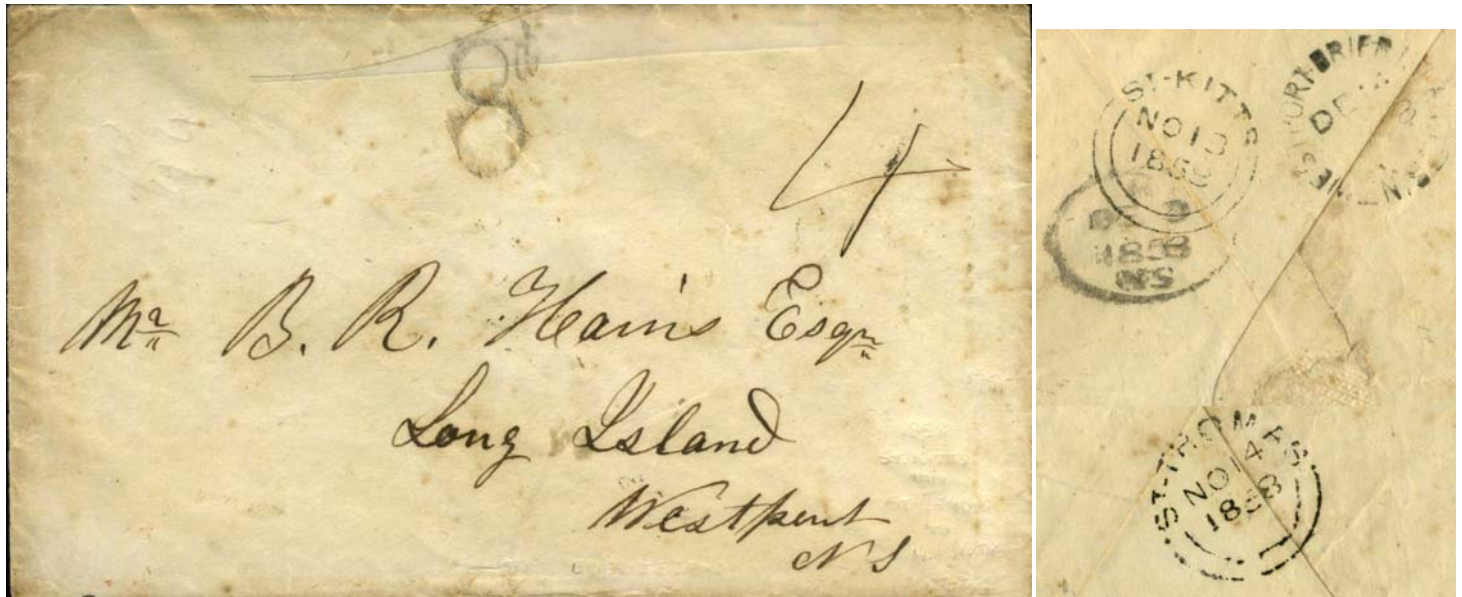 8d
4
Mr B. R. Hains Esqr
Long Island
Westport
N S
ST-KITTS
NO 13
1858
WESTPORT-BRIER
DE
1858
N.S
ST-THOMAS
NO 14
1858